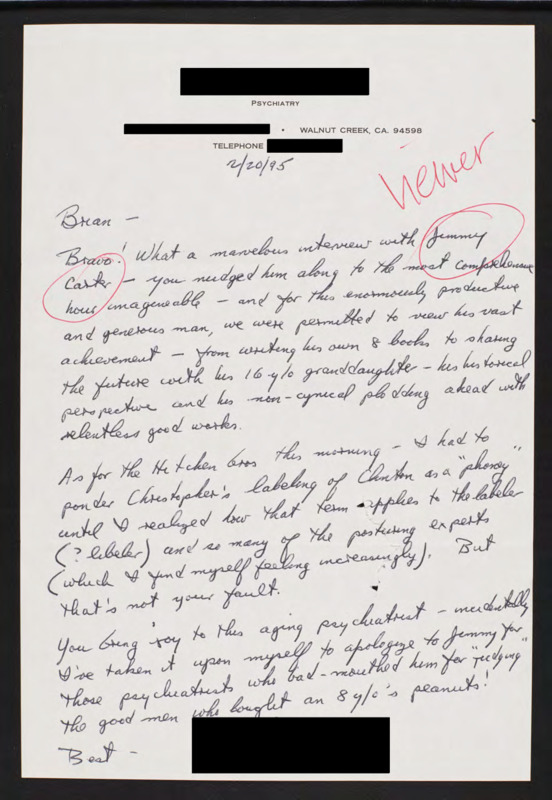 PSYCHIATRY
• WALNUT CREEK, CA. 94598
TELEPHONE
2/20/95
viewer
Brian —
Bravo! What a marvelous interview with Jimmy
Carter — you nudged him along to the most comprehensive
hour imagineable — and for this enormously productive
and generous man, we were permitted to view his vast
achievement — from writing his own 8 books to sharing
the future with his 16 y/o granddaughter — his historical
perspective and his non-cynical plodding ahead with
relentless good works.
As for the Hitchen bros this morning — I had to
ponder Christopher's labeling of Clinton as a "phoney"
until I realized how that term applies to the labeler
(? libeler) and so many of the posturing experts
(which I find myself feeling increasingly). But
that's not your fault.
You bring joy to this aging psychiatrist — incidentally
I've taken it upon myself to apologize to Jimmy for
those psychiatrists who bad-mouthed him for "judging"
the good men who bought an 8 y/o's peanuts!
Best —